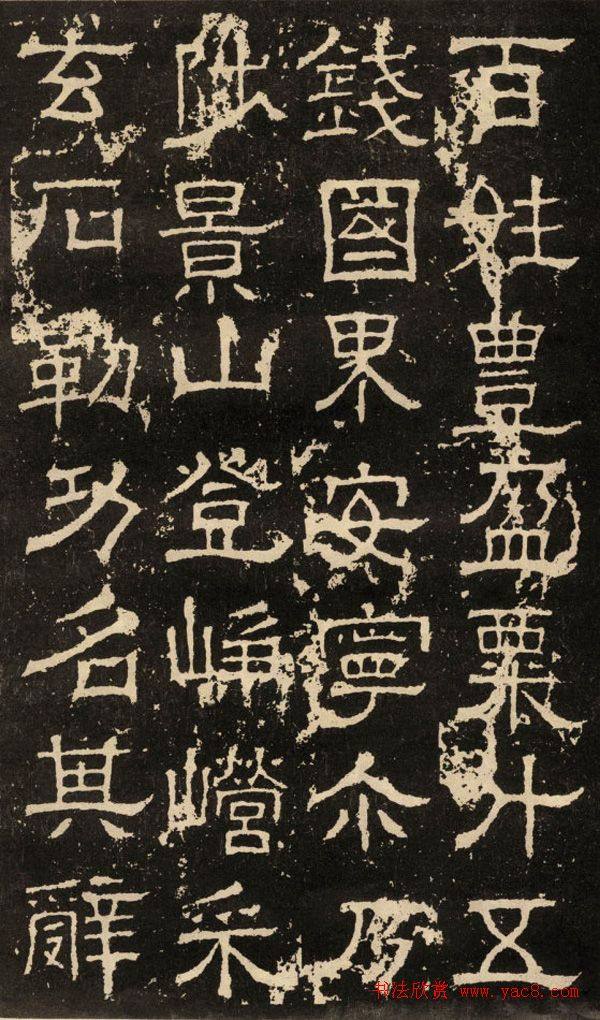 百姓豊盈粟升五
錢國界安寧尒乃
陟景山登崢巆采
玄石勒功名其辭
书法欣赏 www.yac8.com